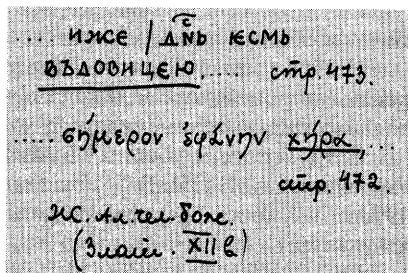 ..... иже / дн҇ь ѥсмь
въдовицею ..... стр. 473.
..... σήμερον ἐφάνην χήρα, ...
стр. 472.
Жс. Ал. чел. бож.
(Злат. XII в)